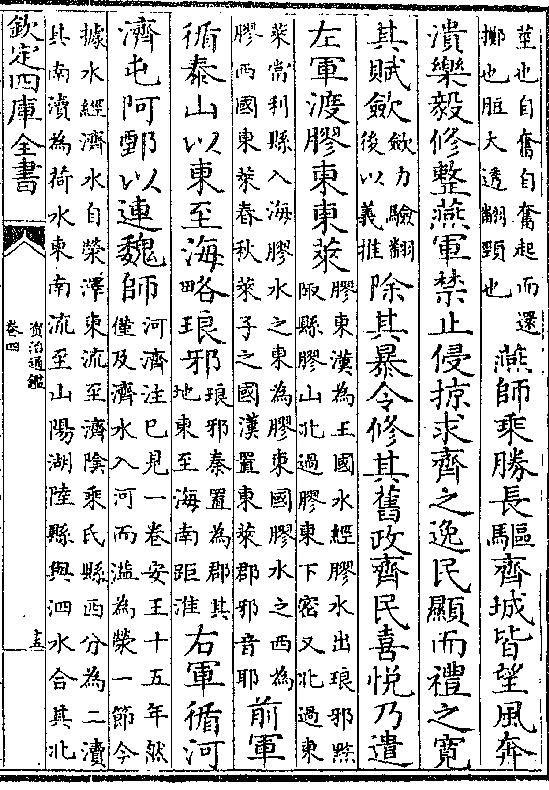 莖也自奮自奮起而還
擲也脰大透翻頸也
燕師乘勝長驅齊城皆望風奔
潰樂毅修整燕軍禁止侵掠求齊之逸民顯而禮之寛
其賦斂
斂力驗翻
後以義推
除其暴令修其舊政齊民喜悦乃遣
左軍渡膠東東萊
膠東漢為王國水經膠水出琅邪黔
陬縣膠山北過膠東下密又北過東
萊當利縣入海膠水之東為膠東國膠水之西為
膠西國東萊春秋萊子之國漢置東萊郡邪音耶
前軍
循泰山以東至海略琅邪
琅邪秦置為郡其
地東至海南距淮
右軍循河
濟屯阿鄄以連魏師
河濟注已見一卷安王十五年然
僅及濟水入河而溢為滎一節今
據水經濟水自滎澤東流至濟陰乘氏縣西分為二瀆
其南瀆為荷水東南流至山陽湖陸縣與泗水合其北
欽定四庫全書
資治通鑑
卷四